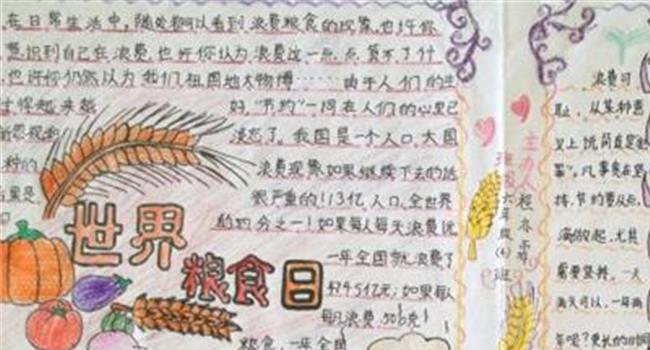 在日常生活中，随处都可以看到浪费粮食的现象。也许你
意识到自己在浪费，也许你认为浪费这一点点算不了什
也许你仍然以为我们祖国地大物博……由于人们的生
好，"节约"一词在人们的心里已
淡忘了。我国是一个人口大国
种的
浪费现象如果继续下去的话
很严重的！13亿人口，全世界
的四分之一！如果每人每天浪费
一年全国就浪费了
亿元；如果每人
每月浪费500克
粮食，一年全国
世界
粮食日
主办人
班级六年级(4)班
浪费可
耻，从某种意
义上说简直是
凡事贵在坚
持，节约要从点
滴做起，尤其
需要坚持。一天
两天可以，一年两
年呢？更长的时间